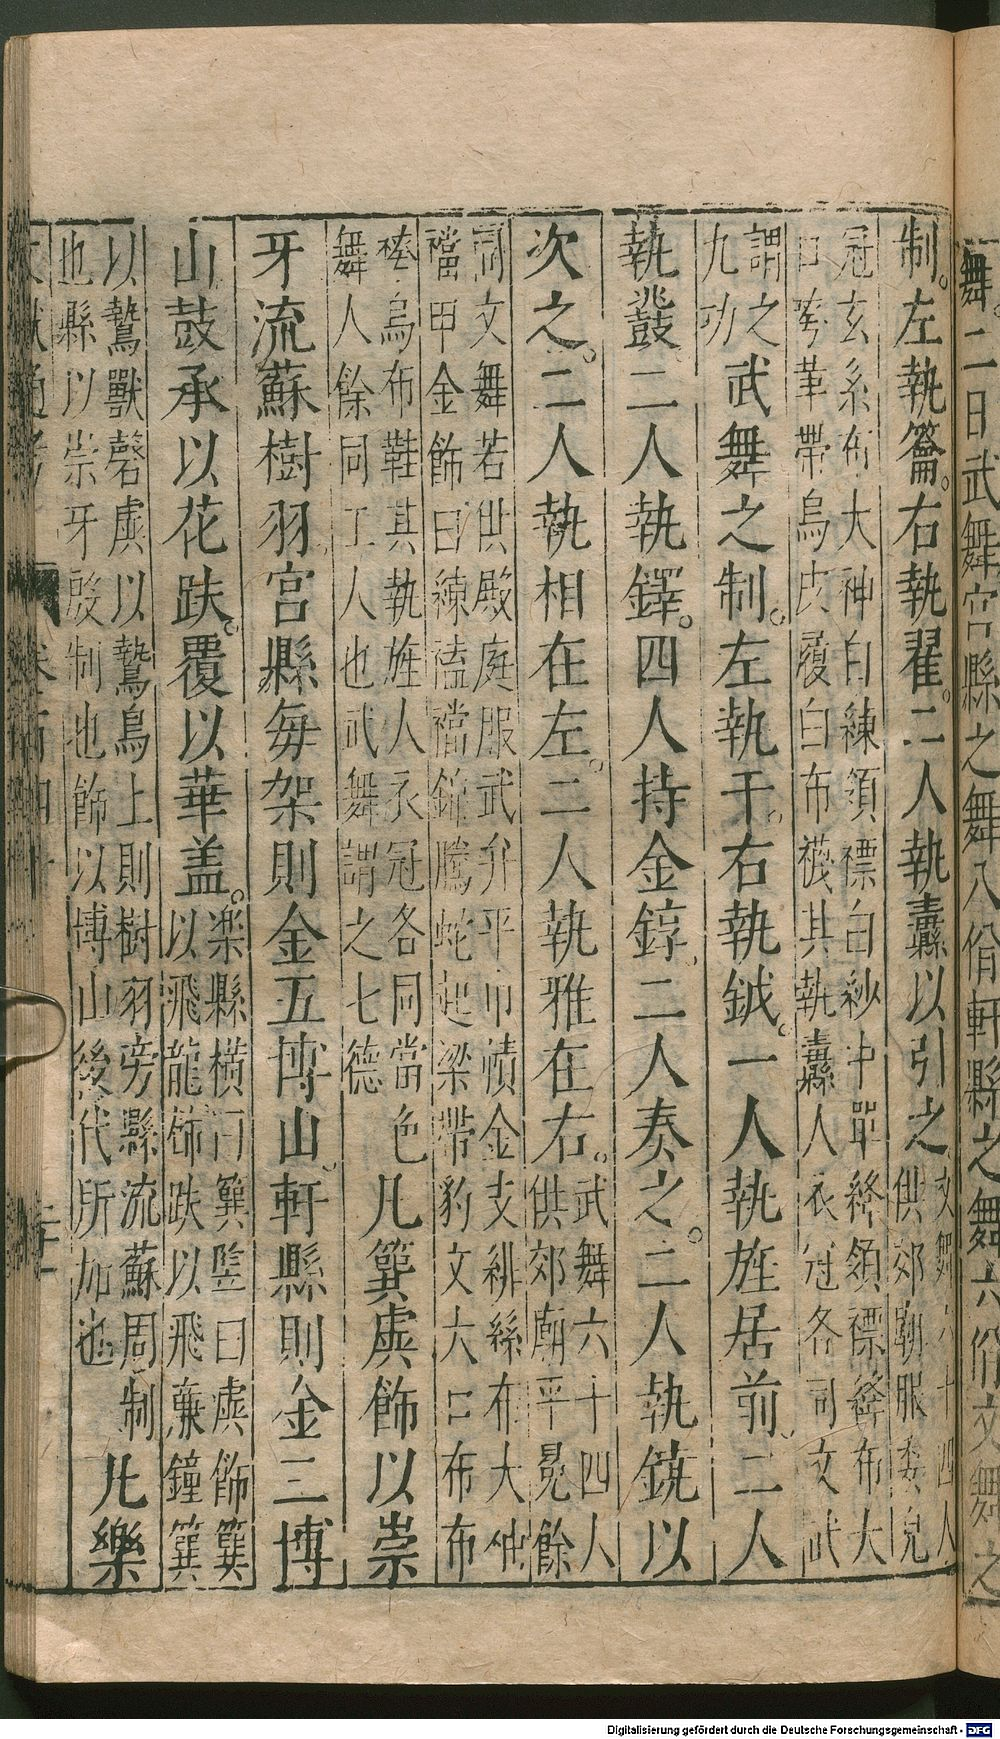 舞。二曰武舞宮縣之舞八佾軒縣之舞六佾文舞之
制。左執籥。右執翟。二人執纛以引之文舞六十四人供郊廟服委皃
冠玄糸布大袖白練領褾白紗中單絳領褾絳布大
口袴革帶烏皮履白布襪其執纛人衣冠各同文武
謂之九功武舞之制。左執干。右執鉞。一人執旌居前。二人
執鼗。二人執鐸。四人持金錞。二人奏之。二人執鐃以
次之。二人執相在左。二人執雅在右。武舞六十四人供郊廟平冕餘
同文舞若供殿庭服武弁平巾幘金支緋絲布大袖
襠甲金飾白練𧛾襠錦騰蛇起梁帶豹文大口布
袴烏布鞋其執旌人衣冠各同當色
舞人餘同工人也武舞謂之七德凡簨虡飾以崇
牙流蘇樹羽宮縣每架則金五博山。軒縣則金三博
山鼓承以花趺。覆以華盖。樂縣橫曰簨豎曰虡飾簨
以飛龍飾趺以飛廉鐘簨
以鷙獸磬虡以鷙鳥上則樹羽旁縣流蘇周制
也縣以崇牙殷制也飾以博山後代所加也凡樂
文獻通考 卷百四十
Digitalisierung gefördert durch die Deutsche Forschungsgemeinschaft - DFG